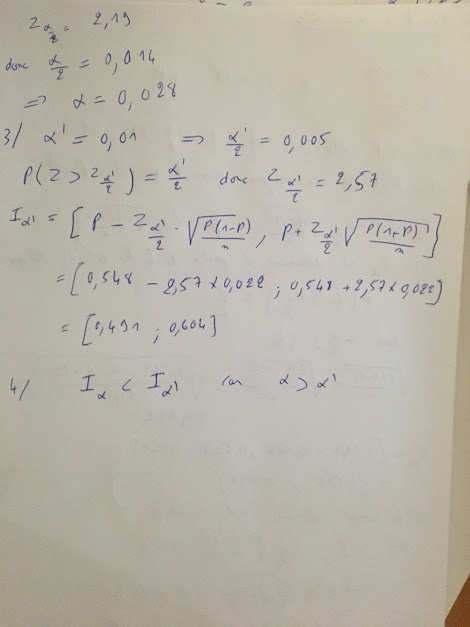 Z α/2 = 2,19
donc α/2 = 0,014
⇒ α = 0,028
3/ α' = 0,01 ⇒ α'/2 = 0,005
P(Z > Z α'/2) = α'/2 donc Z α'/2 = 2,57
I α' = [P - Z α'/2 · √(P(1-P)/n) , P + Z α'/2 √(P(1+P)/n)]
= [0,548 - 2,57 × 0,022 ; 0,548 + 2,57 × 0,022]
= [0,491 ; 0,604]
4/ I α < I α' car α > α'